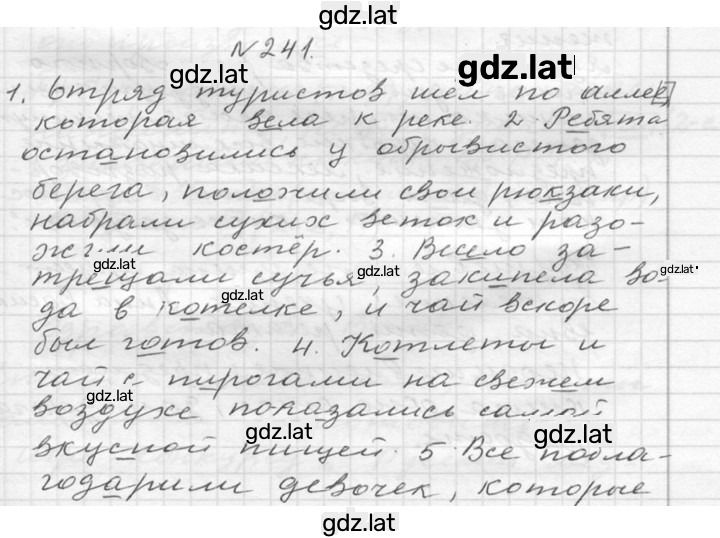 gdz.lat
№241.
gdz.lat
gdz.lat
1. Отряд туристов шёл по аллее,
которая вела к реке. 2. Ребята
остановились у обрывистого
берега, положили свои рюкзаки,
набрали сухих веток и разо-
жгли костёр. 3. Весело за-
gdz.lat gdz.lat gdz.lat
трещали сучья, закипела во-
gdz.lat
да в котелке, и чай вскоре
был готов. 4. Котлеты и
чай с пирогами на свежем
gdz.lat
воздухе, показались самой
gdz.lat gdz.lat
вкусной пищей. 5. Все побла-
годарили девочек, которые
gdz.lat